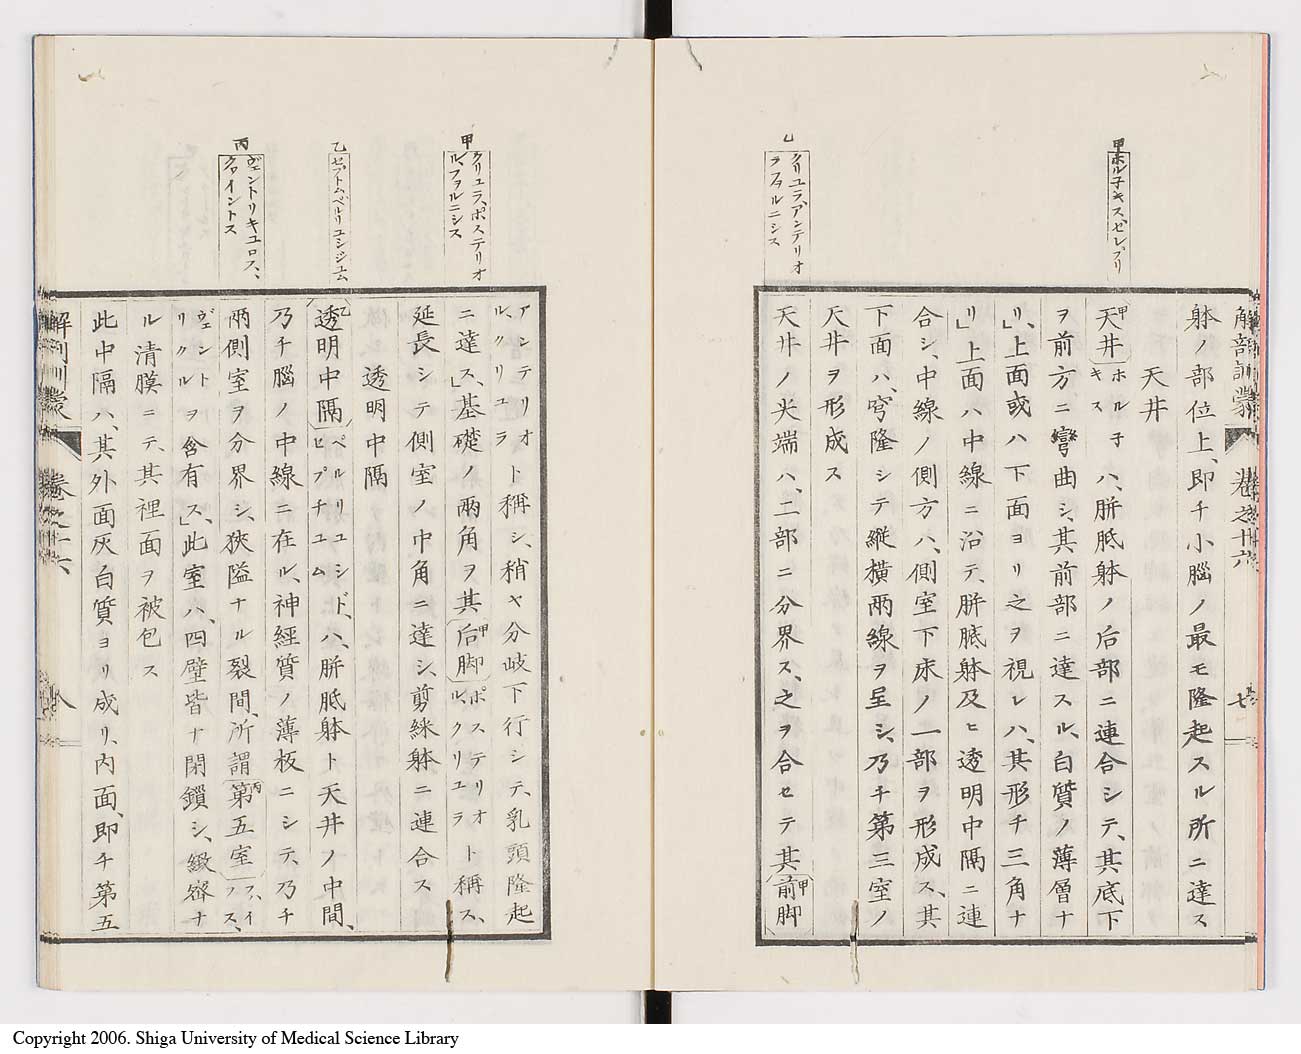 解剖訓蒙 卷之十六 七
甲 ホル子キス、セレブリ
乙 クリユラ、アンテリオ
ラフヲルニシス
躰ノ部位上、即チ小腦ノ最モ隆起スル所ニ達ス
天井
天井ホル子キスハ、胼胝躰ノ后部ニ連合シテ、其底下
ヲ前方ニ彎曲シ、其前部ニ達スル、白質ノ薄層ナ
リ」、上面或ハ下面ヨリ之ヲ視レハ、其形チ三角ナ
リ」上面ハ中線ニ沿テ、胼胝躰及ヒ透明中隔ニ連
合シ、中線ノ側方ハ、側室下床ノ一部ヲ形成ス、其
下面ハ、穹隆シテ縱横兩線ヲ呈シ、乃チ第三室ノ
天井ヲ形成ス
天井ノ尖端ハ、二部ニ分界ス、之ヲ合セテ其前脚
甲 クリユラ、ポステリオ
ル、フヲルニシス
乙 セプトム、ペルリユシジユム
丙 ヴェントリキユロス、
クワイントス
アンテリオル、クリユラト稱シ、稍ヤ分岐下行シテ、乳頭隆起
ニ達ス」、基礎ノ兩角ヲ其后脚ポステリオル、クリユラト稱ス、
延長シテ側室ノ中角ニ達シ、剪綵躰ニ連合ス
透明中隔
透明中隔ペルリユシド、ヒプチユムハ、胼胝躰ト天井ノ中間、
乃チ腦ノ中線ニ在ル、神經質ノ薄板ニシテ、乃チ
兩側室ヲ分界シ、狹隘ナル裂間、所謂第五室フ、イフス、
ヴェントリクルヲ含有ス、」此室ハ、四壁皆ナ閉鎖シ、緻密ナ
ル清膜ニテ、其裡面ヲ被包ス
此中隔ハ、其外面灰白質ヨリ成リ、内面、即チ第五
解剖訓蒙 卷之十六 八
Copyright 2006. Shiga University of Medical Science Library